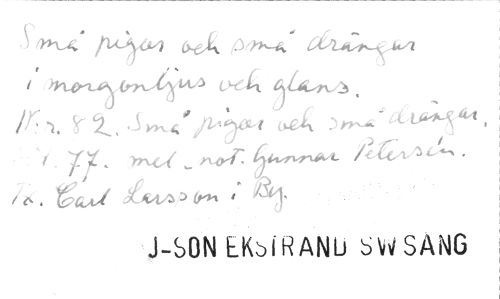 Små pigor och små drängar
i morgonljus och glans.
Nr. 82. Små pigor och små drängar.
77. mel. not. Gunnar Petersén.
Carl Larsson i By.
J-SON EKSTRAND SWSANG